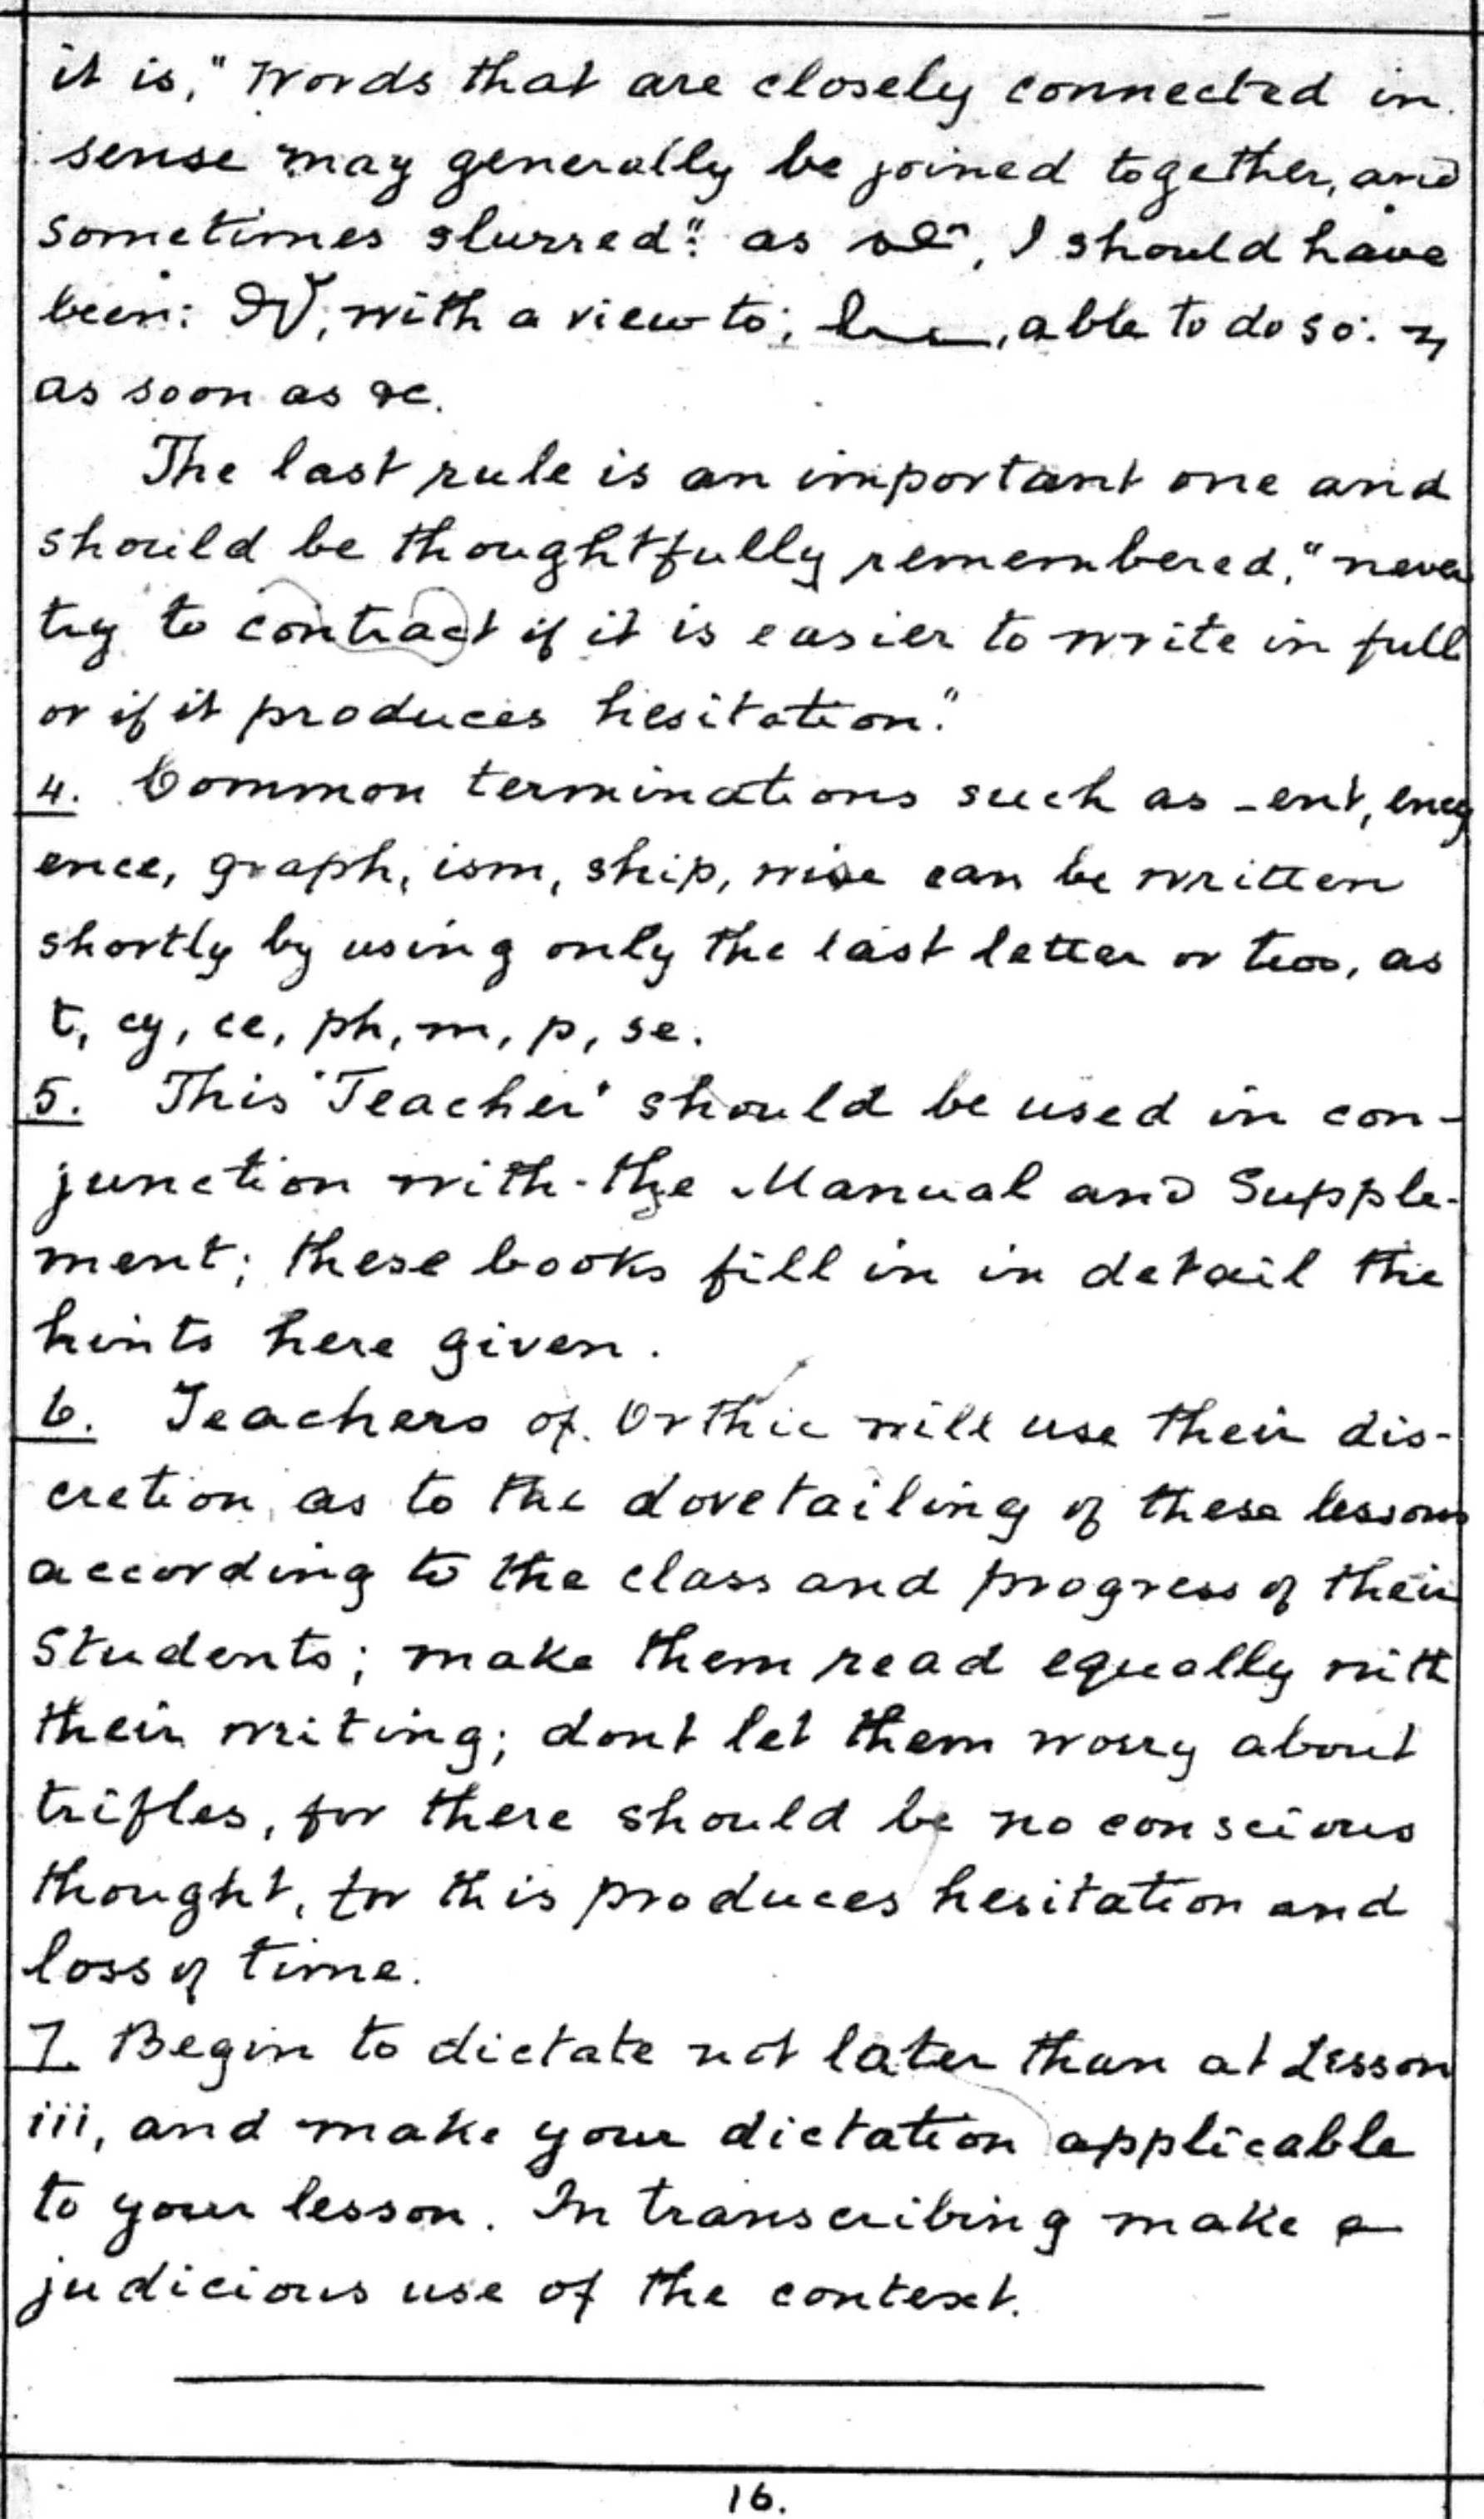 it is, "Words that are closely connected in
sense may generally be joined together, and
sometimes slurred": as , I should have
been: , with a view to; , able to do so:
as soon as &c.
The last rule is an important one and
should be thoughtfully remembered, "never
try to contract if it is easier to write in full
or if it produces hesitation."
4. Common terminations such as -ent, ency
ence, graph, ism, ship, wise can be written
shortly by using only the last letter or two, as
t, cy, ce, ph, m, p, se.
5. This 'Teacher' should be used in con-
junction with the Manual and Supple-
ment; these books fill in in detail the
hints here given.
6. Teachers of Orthic will use their dis-
cretion as to the dovetailing of these lessons
according to the class and progress of their
Students; make them read equally with
their writing; dont let them worry about
trifles, for there should be no conscious
thought, for this produces hesitation and
loss of time.
7. Begin to dictate not later than at Lesson
iii, and make your dictation applicable
to your lesson. In transcribing make a
judicious use of the context.
16.